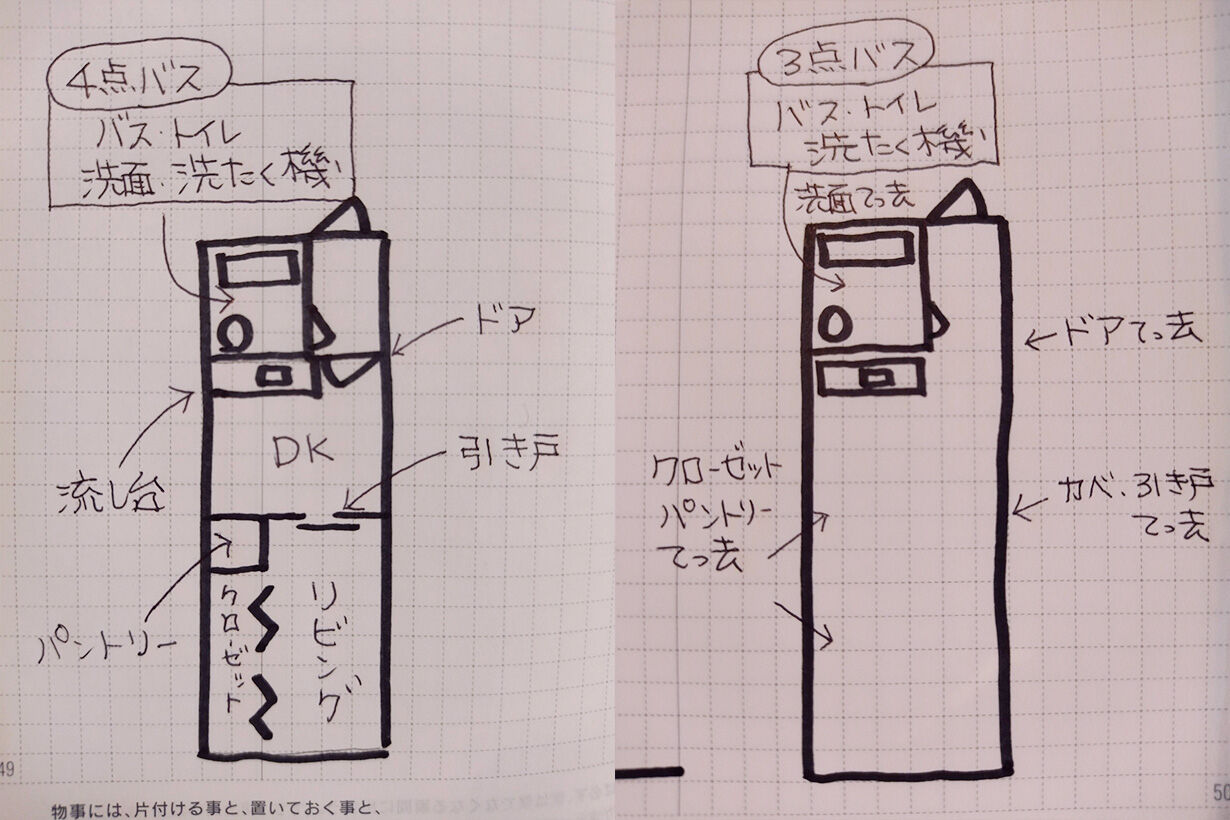 4点バス
バス・トイレ
洗面・洗たく機
ドア
流し台
DK
引き戸
パントリー
クローゼット
リビング
49
物事には、片付ける事と、置いておく事と、
3点バス
バス・トイレ
洗たく機
洗面てっ去
ドアてっ去
クローゼット
パントリー
てっ去
カベ・引き戸
てっ去
50